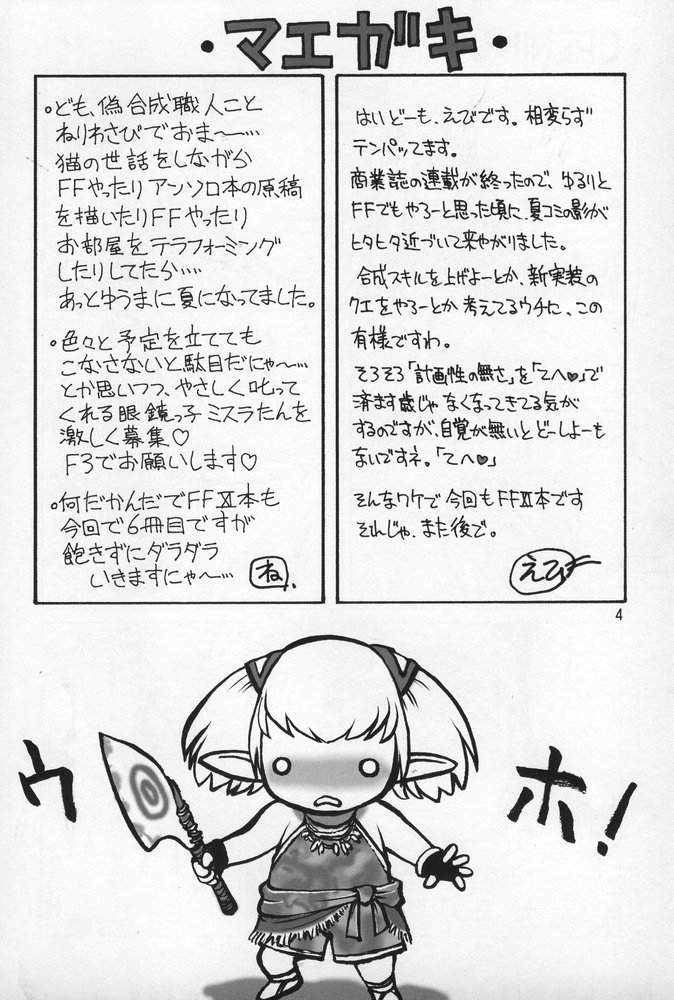 ・マエガキ・
はいどーも、えびです。相変らず
テンパッてます。
商業誌の連載が終ったので、ゆるりと
FFでもやろーと思った頃に、夏コミの影が
ヒタヒタ近づいて来やがりました。
合成スキルを上げよーとか、新実装の
クエをやろーとか考えてるウチに、この
有様ですわ。
そろそろ「計画性の無さ」を「てへ♡」で
済ます歳じゃなくなってきてる気が
するのですが、自覚が無いとどーしよーも
ないですネ。「てへ♡」
そんなワケで今回もFFⅪ本です
それじゃ、また後で。
えび
。ども、偽合成職人こと
ねりわさびでおま〜…
猫の世話をしながら
FFやったりアンソロ本の原稿
を描いたりFFやったり
お部屋をテラフォーミング
したりしてたら‥‥
あっとゆうまに夏になってました。
。色々と予定を立てても
こなさないと駄目だにゃ〜…
とか思いつつ、やさしく叱って
くれる眼鏡っ子ミスラたんを
激しく募集♡
F3でお願いします♡
。何だかんだでFFⅪ本も
今回で6冊目ですが
飽きずにダラダラ
いきますにゃ〜…
ね.
4
ウ
ホ!